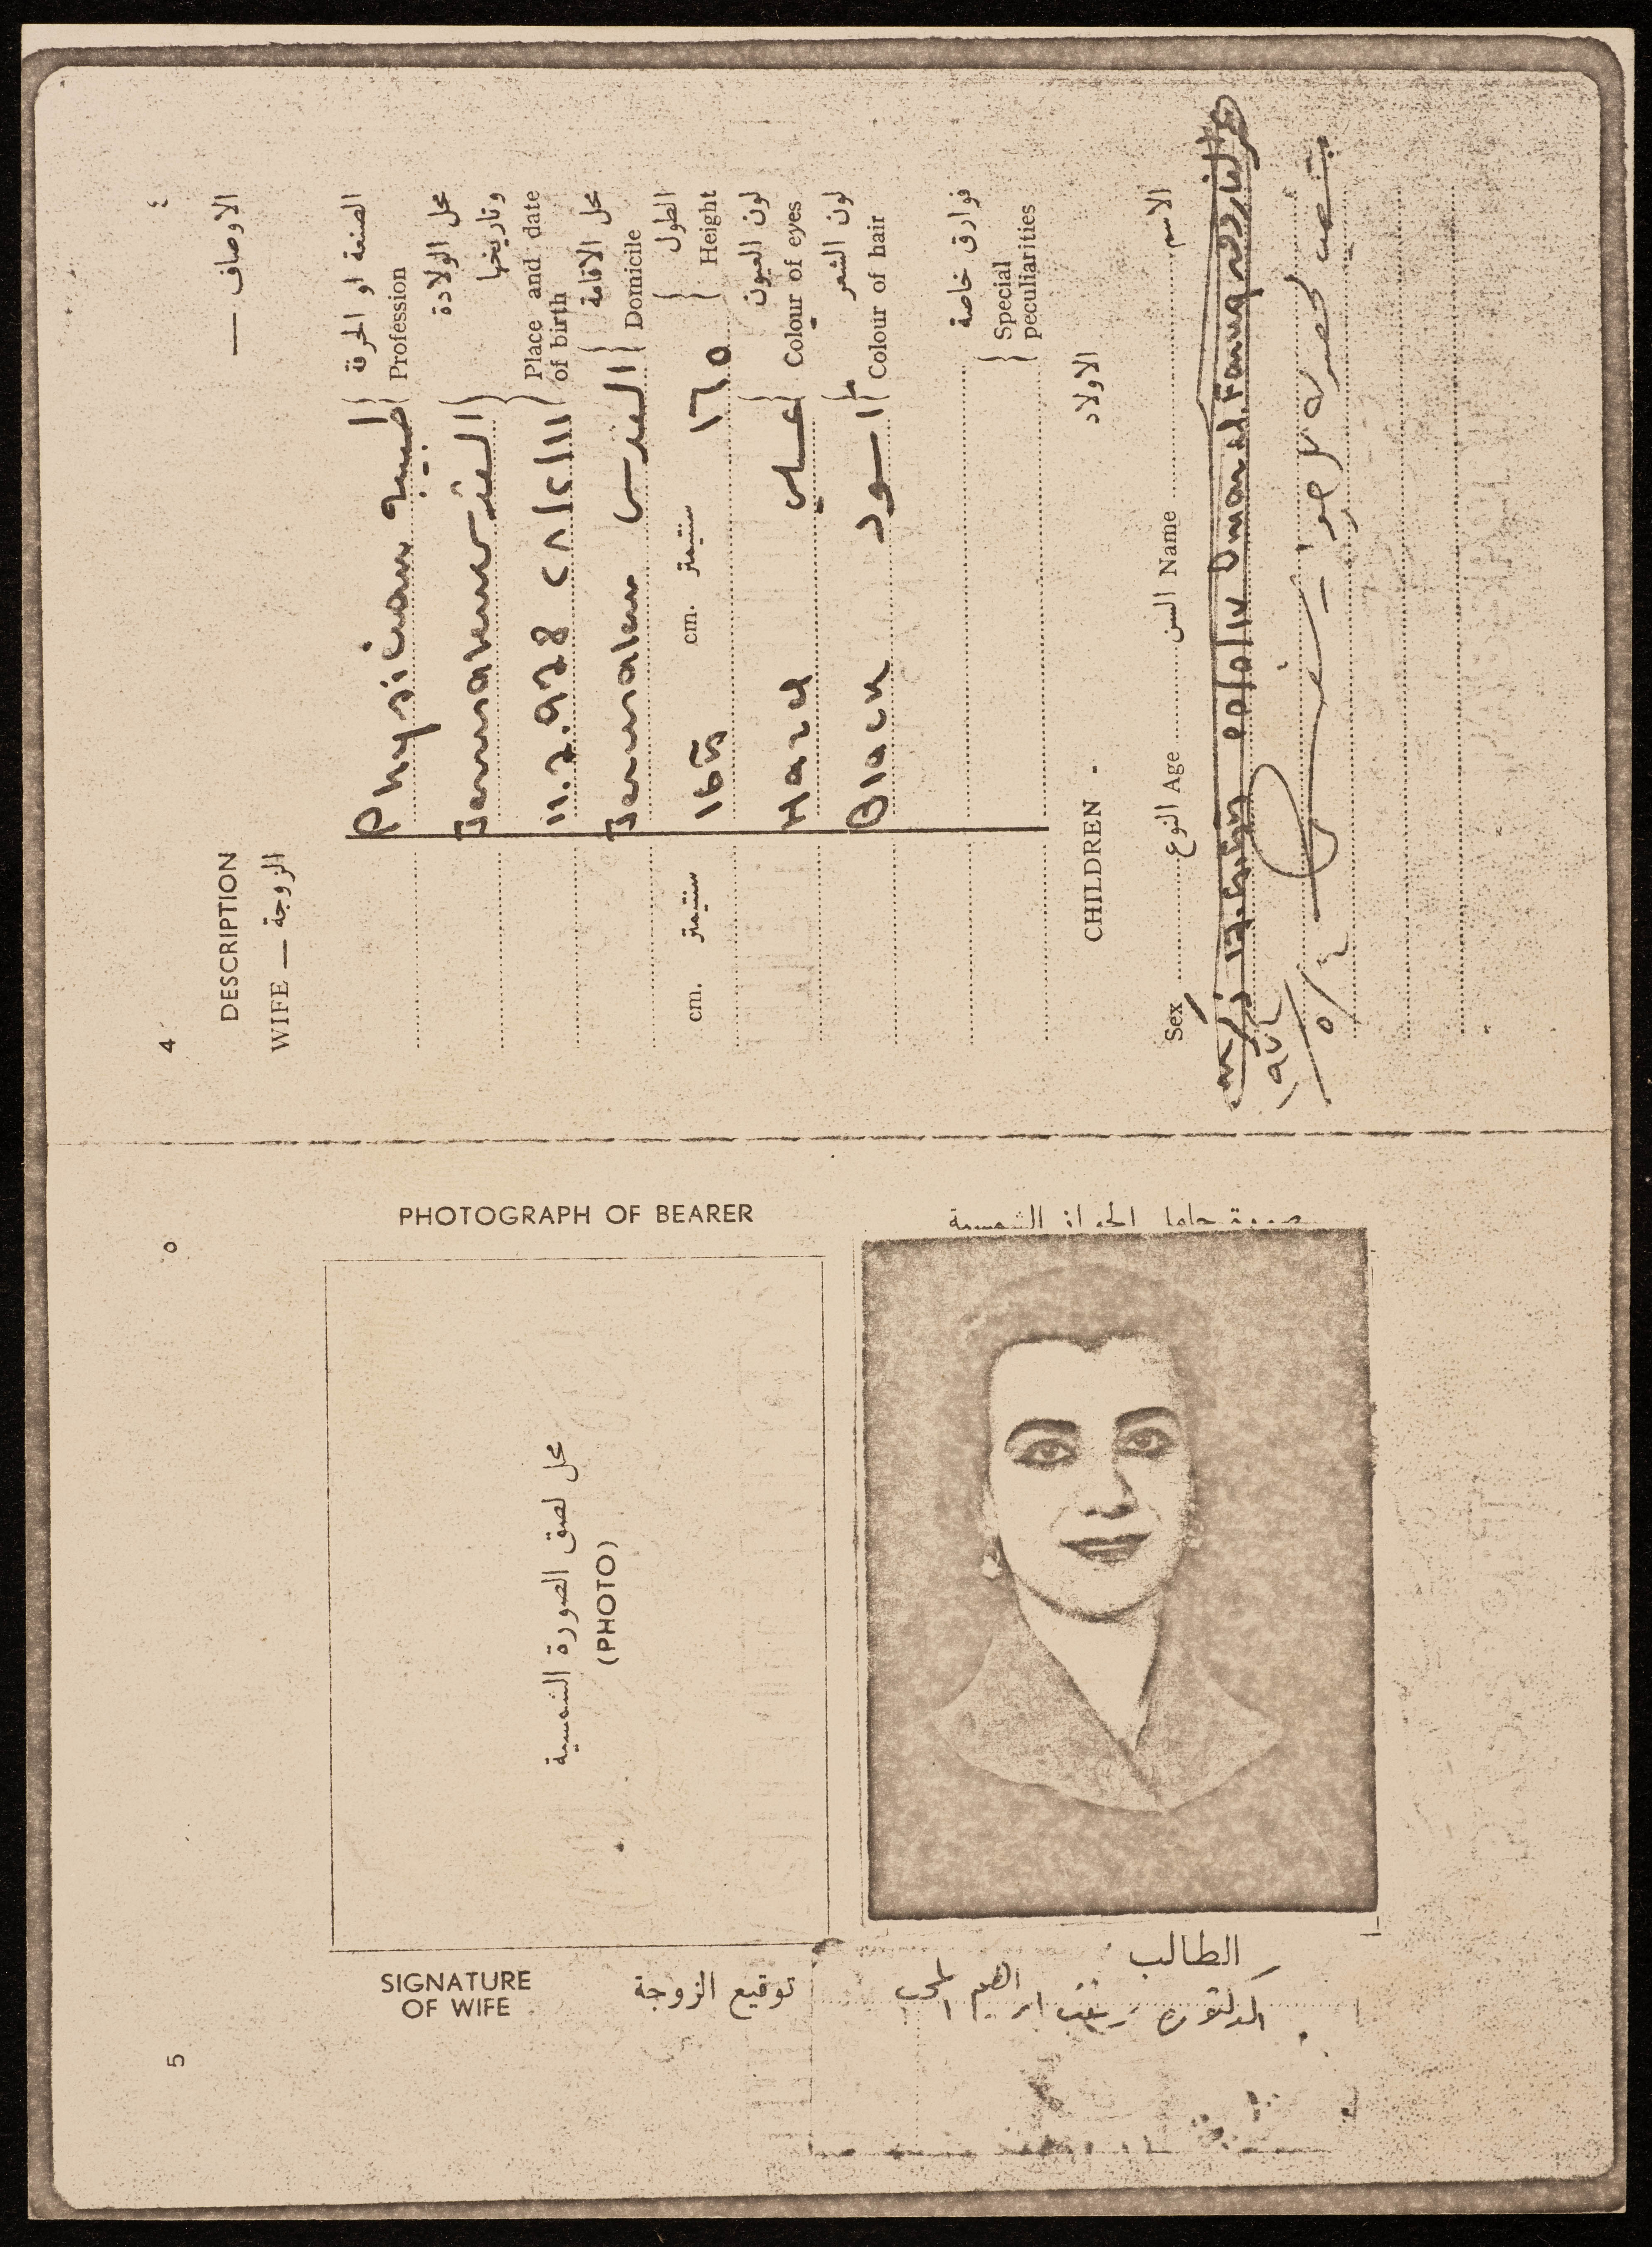 4
٤
DESCRIPTION
الاوصاف —
WIFE — الزوجة
Physician طبيبة
الصنعة او الحرفة
Profession
Jerusalem القدس
محل الولادة
وتاريخها
Place and date
of birth
11.2.928 ٢٨/٢/١١
Jerusalem القدس
محل الاقامة
Domicile
cm. سنتيمتر
165 cm. سنتيمتر ١٦٥
الطول
Height
Hazel عسلي
لون العيون
Colour of eyes
Black اسود
لون الشعر
Colour of hair
فوارق خاصة
Special
peculiarities
CHILDREN -
الاولاد
Sex النوع Age السن Name الاسم
٥٥/٥/١٧
١٩٧
5
٥
PHOTOGRAPH OF BEARER
صورة حامل الجواز الشمسية
محل لصق الصورة الشمسية
(PHOTO)
SIGNATURE
OF WIFE
توقيع الزوجة
الطالب
الدكتورة زينب ابراهيم